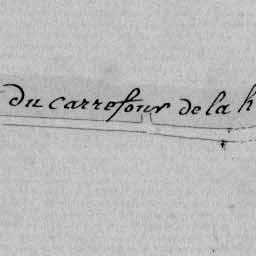 du carrefour de la h